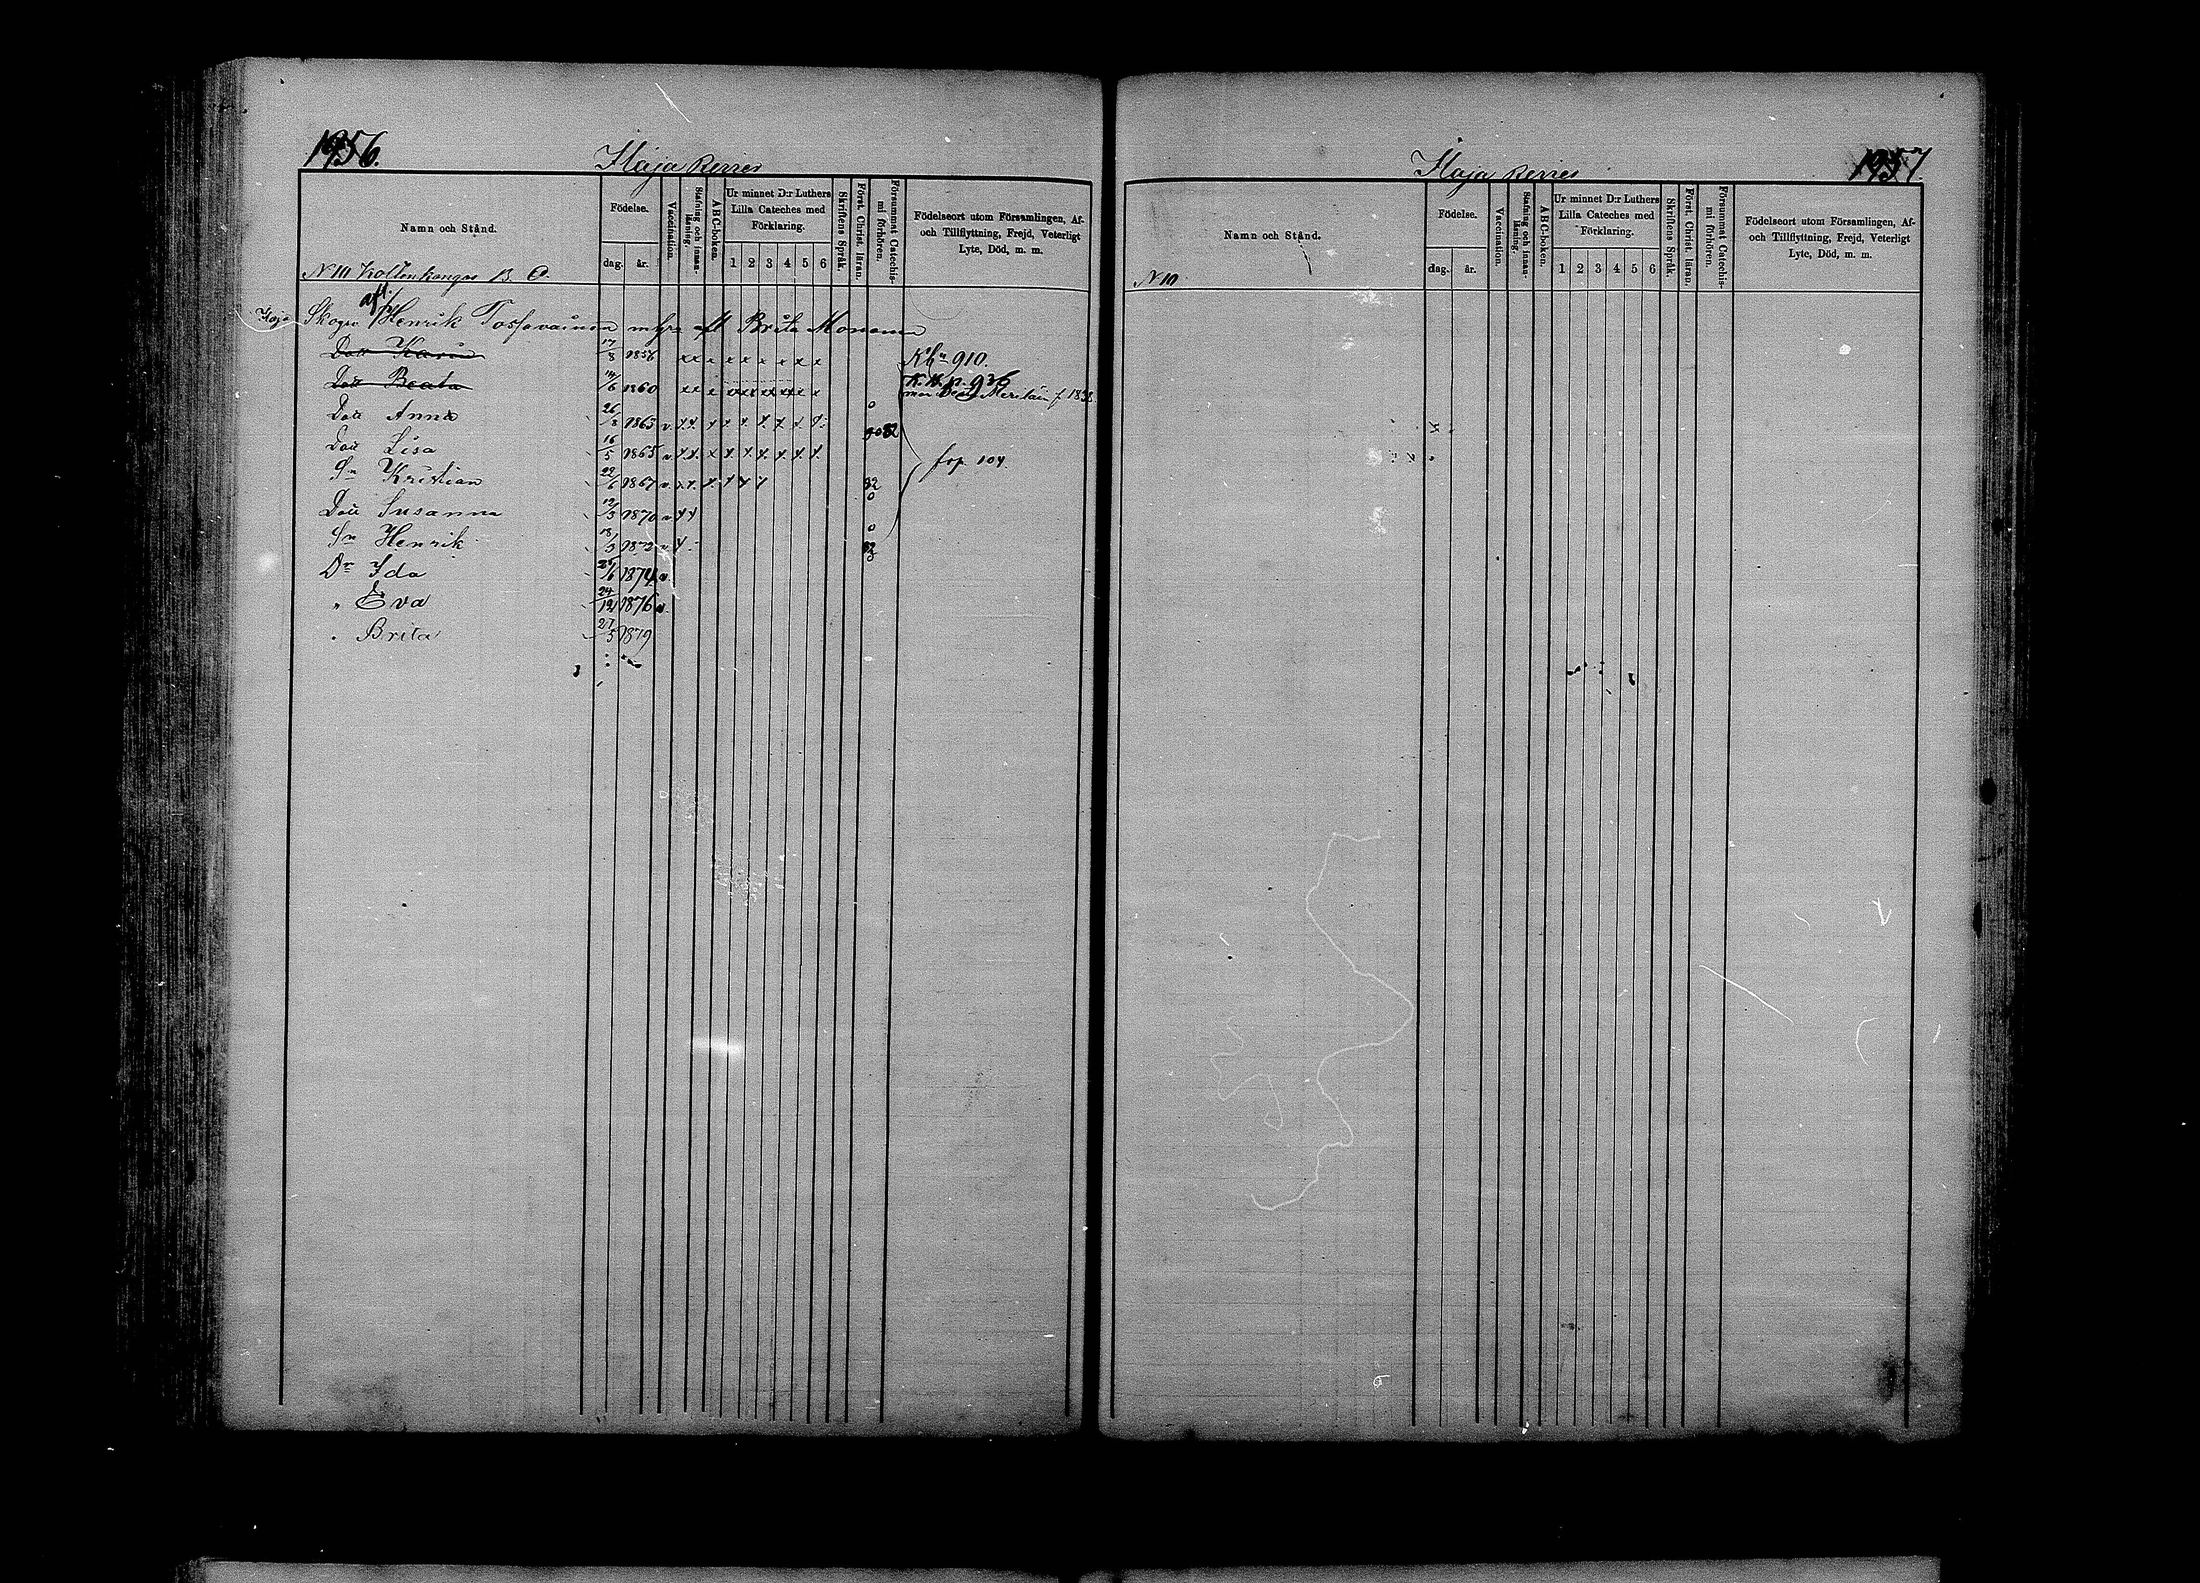 1956.
Haja Kerres
Namn och Stånd.
Födelse.
dag. år.
Vaccination.
Stafning och innanläsning.
ABC-boken.
Ur minnet D:r Luthers
Lilla Cateches med
Förklaring.
1 2 3 4 5 6
Skriftens Språk.
Först. Christ. läran.
Försummat Catechismi förhören.
Födelseort utom Församlingen, Af-
och Tillflyttning, Frejd, Veterligt
Lyte, Död, m. m.
N 10 Koltonkangas B. A.
afl.
Henrik Tossavainen aflt Brita Mononen
Dott Karin 17/8 1856 x x x x x x x x x Kbn 910.
Dott Beata 14/6 1860 K.K. p. 926
Dott Anna 26/8 1863
Dott Lisa 16/5 1865
fsp. 104.
Sn Kristian 22/6 1867 82
Dott Susanna 12/3 1870
Sn Henrik 18/3 1873
Dr Ida 1874
" Eva 24/12 1876
" Brita 27/5 1879
1957.
Haja Kerres
Namn och Stånd.
Födelse.
dag. år.
Vaccination.
Stafning och innanläsning.
ABC-boken.
Ur minnet D:r Luthers
Lilla Cateches med
Förklaring.
1 2 3 4 5 6
Skriftens Språk.
Först. Christ. läran.
Försummat Catechismi förhören.
Födelseort utom Församlingen, Af-
och Tillflyttning, Frejd, Veterligt
Lyte, Död, m. m.
N 10